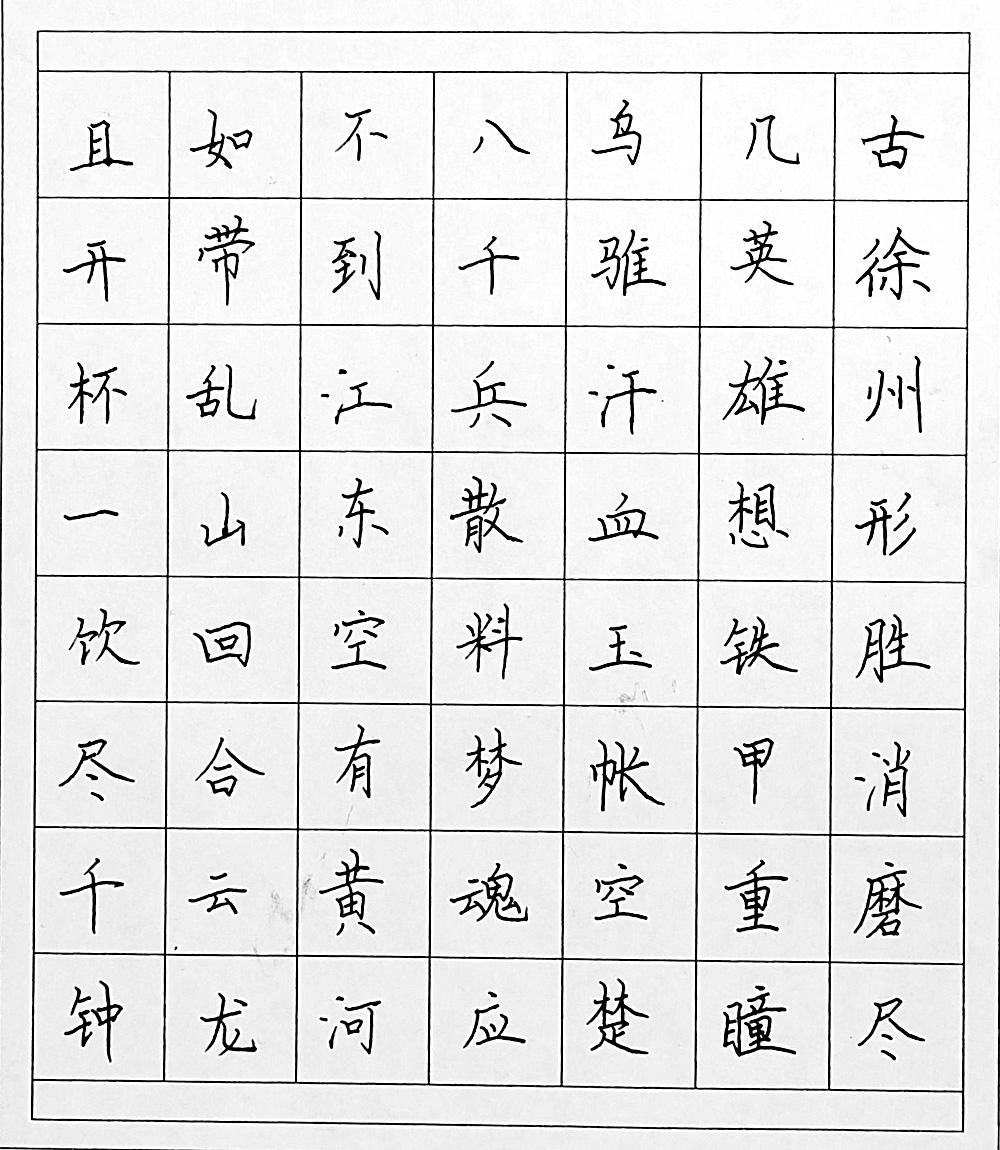 古徐州形胜消磨尽
几英雄想铁甲重瞳
乌骓汗血玉帐空楚
八千兵散料梦魂应
不到江东空有黄河
如带乱山回合云龙
且开杯一饮尽千钟